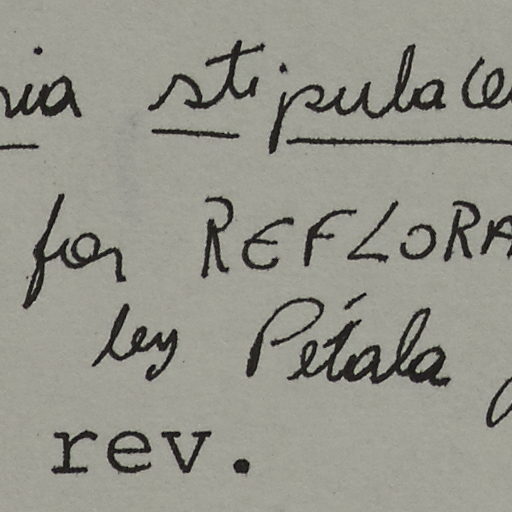 ria stipulace
for REFLORA
by Pétala
rev.